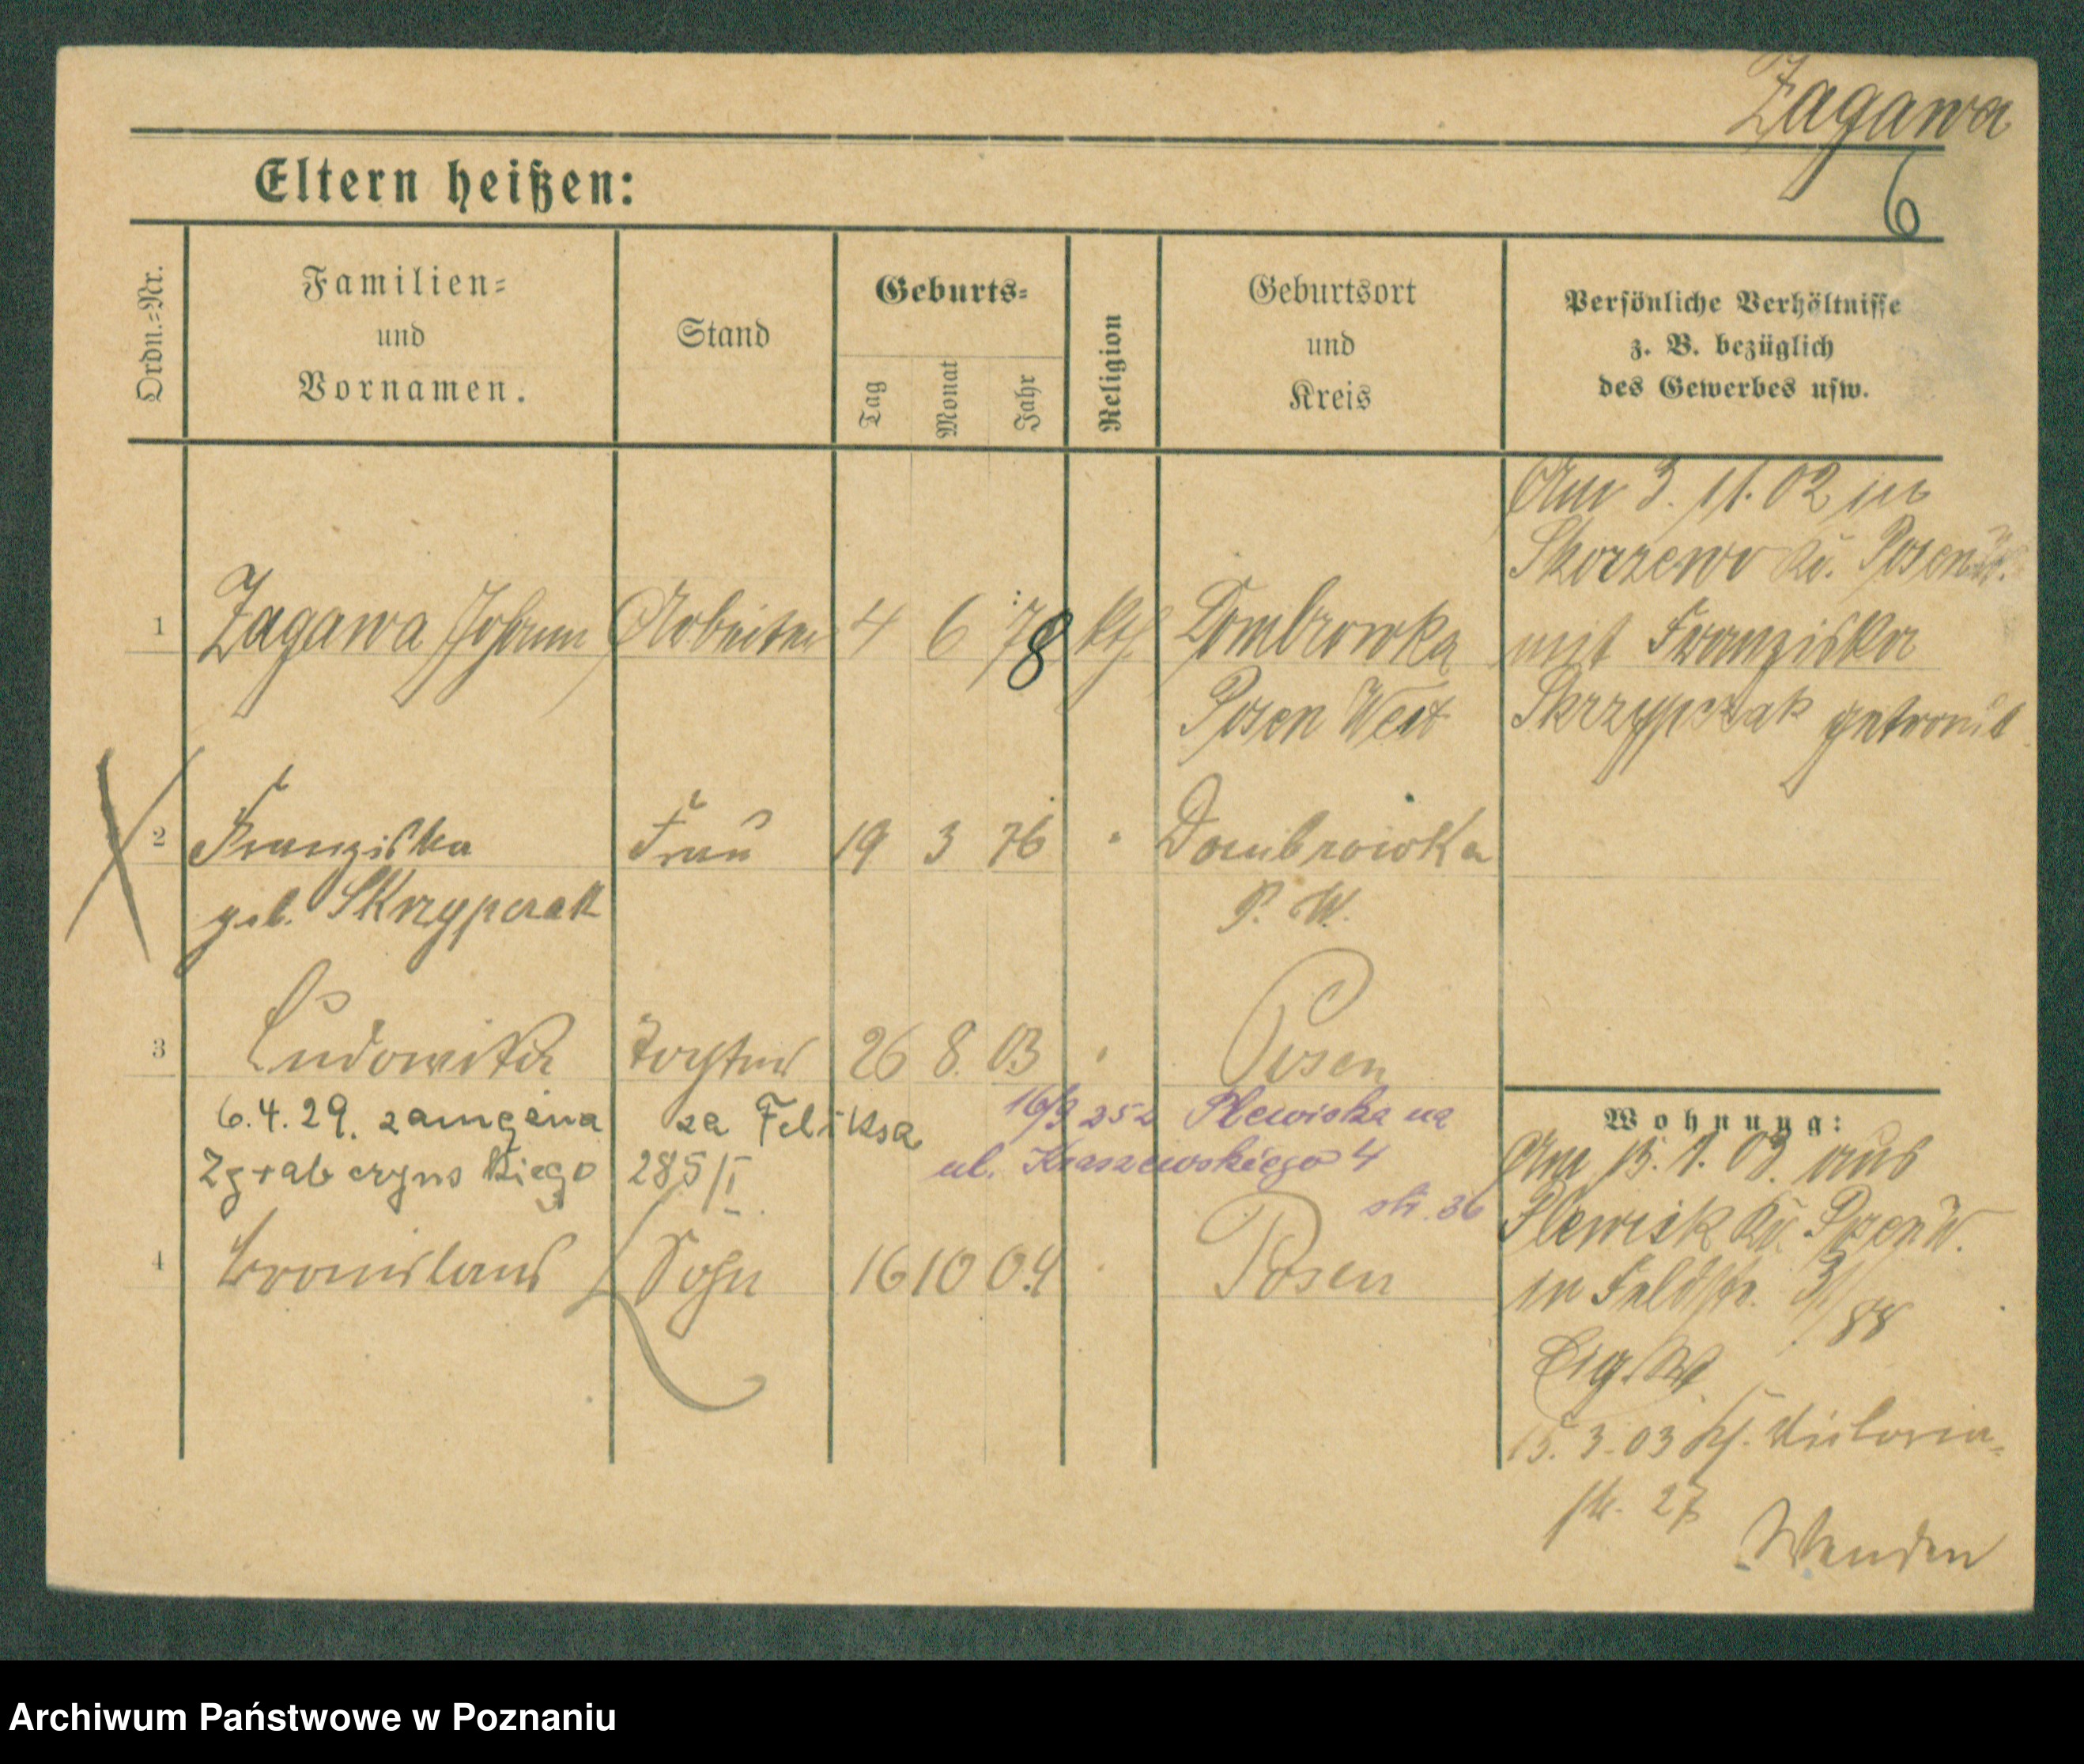 Zagawa
6
Eltern heißen:
Ordn.=Nr.
Familien=
und
Vornamen.
Stand
Geburts=
Tag
Monat
Jahr
Religion
Geburtsort
und
Kreis
Persönliche Verhältnisse
z. B. bezüglich
des Gewerbes usw.
Am 3. 11. 02 in
Skorzewo Kr. Posen W.
1 Zagawa Johann Arbeiter 4 6 78 kth. Dombrowka mit Franziska
Posen West Skrzypczak getraut
2 Franziska Frau 19 3 76 " Dombrowka
geb. Skrzypczak P. W.
3 Ludowika Tochter 26 8. 03 " Posen
6.4.29. zamężna za Feliksa
16/9 252 Plewiska na
Zgrabczyńskiego 285/I
ul. Kraszewskiego 4
str. 36
4 Bronislaus Sohn 16 10 04 Posen
Wohnung:
Am 13. 1. 03. aus
Plewisk Kr. Posen W.
in Feldstr. 31/
15. 3. 03 Victoria-
str. 27
Wenden
Archiwum Państwowe w Poznaniu